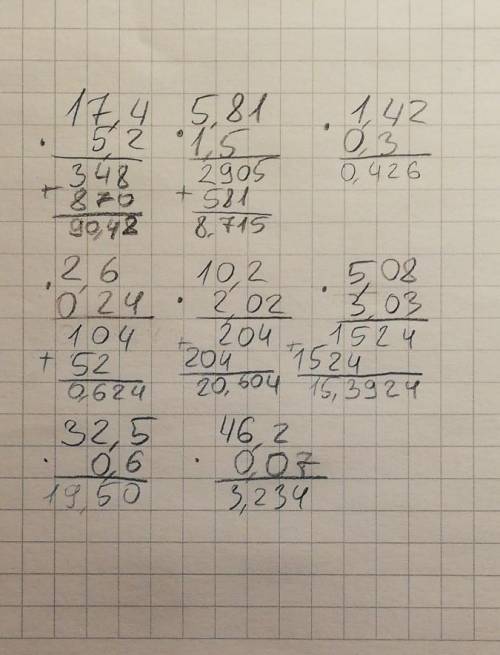 17,4
· 5,2
348
+ 870
90,48
5,81
· 1,5
2905
+ 581
8,715
1,42
· 0,3
0,426
· 2,6
0,24
104
+ 52
0,624
10,2
· 2,02
204
+ 204
20,604
· 5,08
3,03
1524
+ 1524
15,3924
32,5
· 0,6
19,50
46,2
· 0,07
3,234